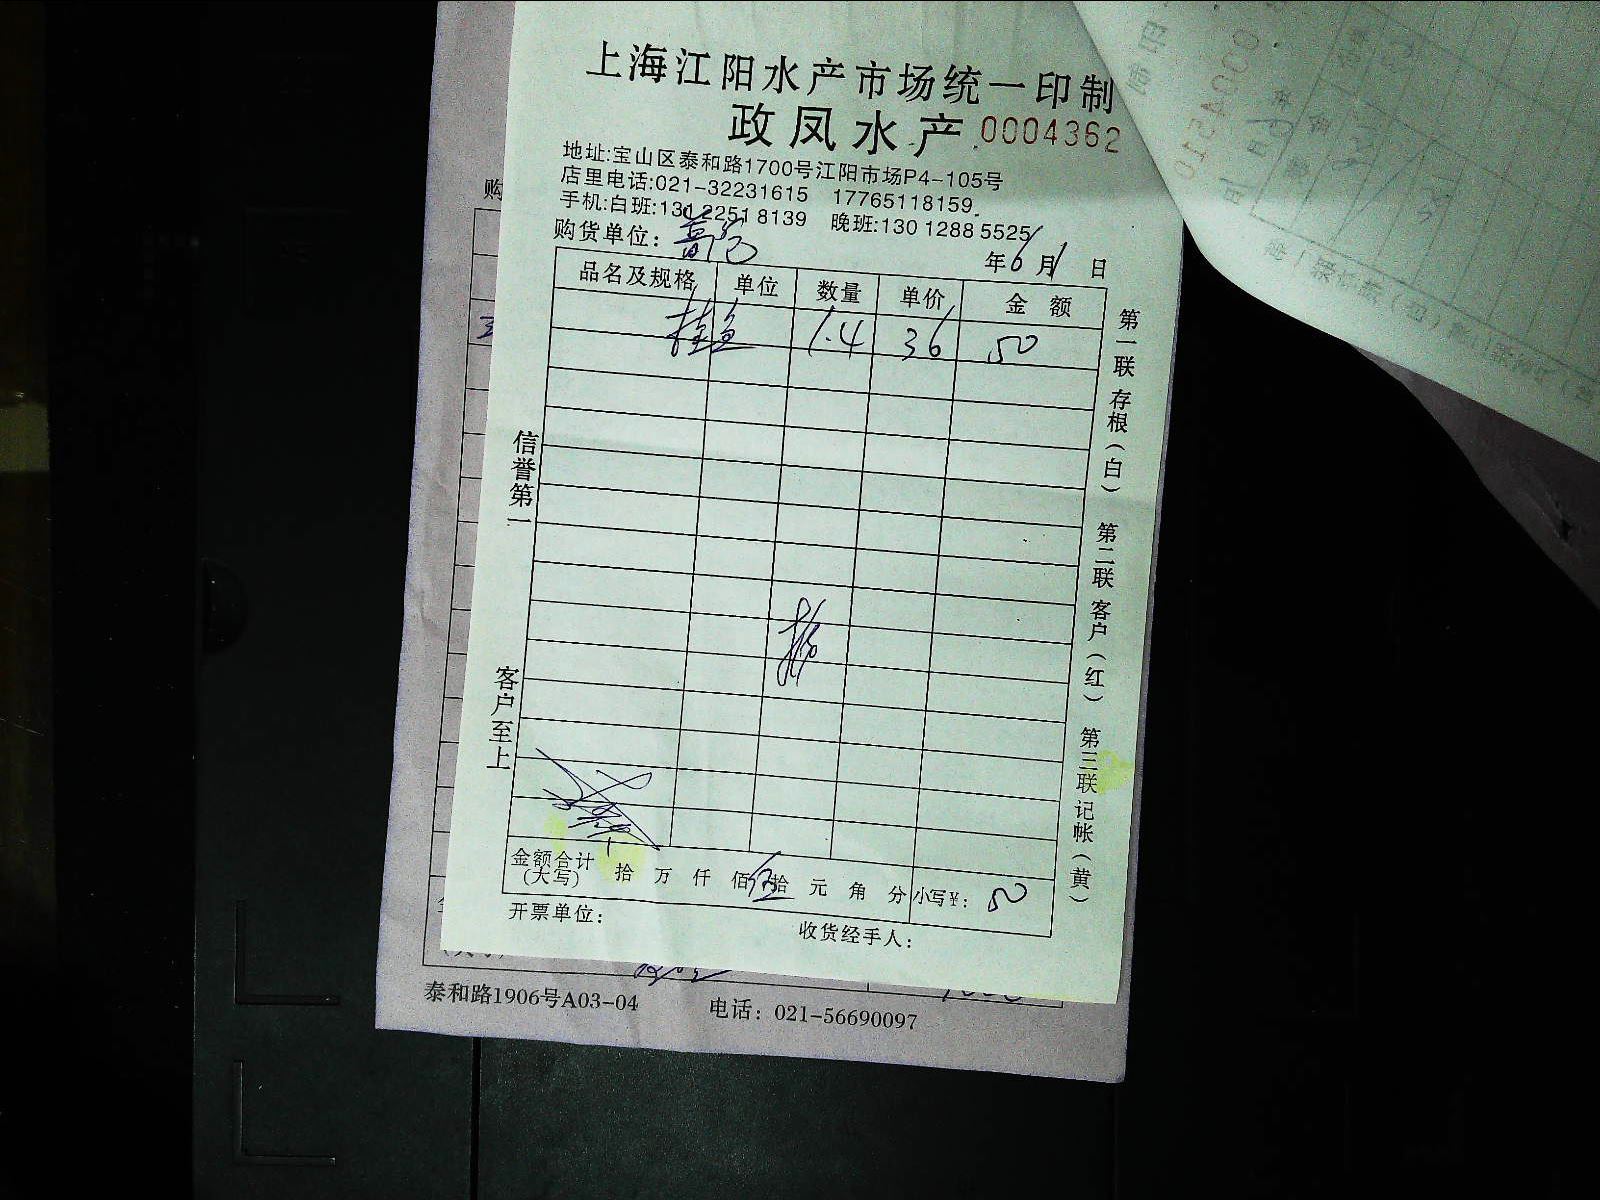 上海江阳水产市场统一印制
政凤水产 0004362
地址:宝山区泰和路1700号江阳市场P4-105号
店里电话:021-32231615 17765118159
手机:白班:131 2251 8139 晚班:130 1288 5525
购货单位:
年6月1日
品名及规格 单位 数量 单价 金额
桂鱼 1.4 36 50
信誉第一
客户至上
第一联 存根(白) 第二联 客户(红) 第三联 记帐(黄)
金额合计(大写) 拾 万 仟 佰 伍拾 元 角 分 小写¥: 50
开票单位: 收货经手人:
泰和路1906号A03-04 电话:021-56690097